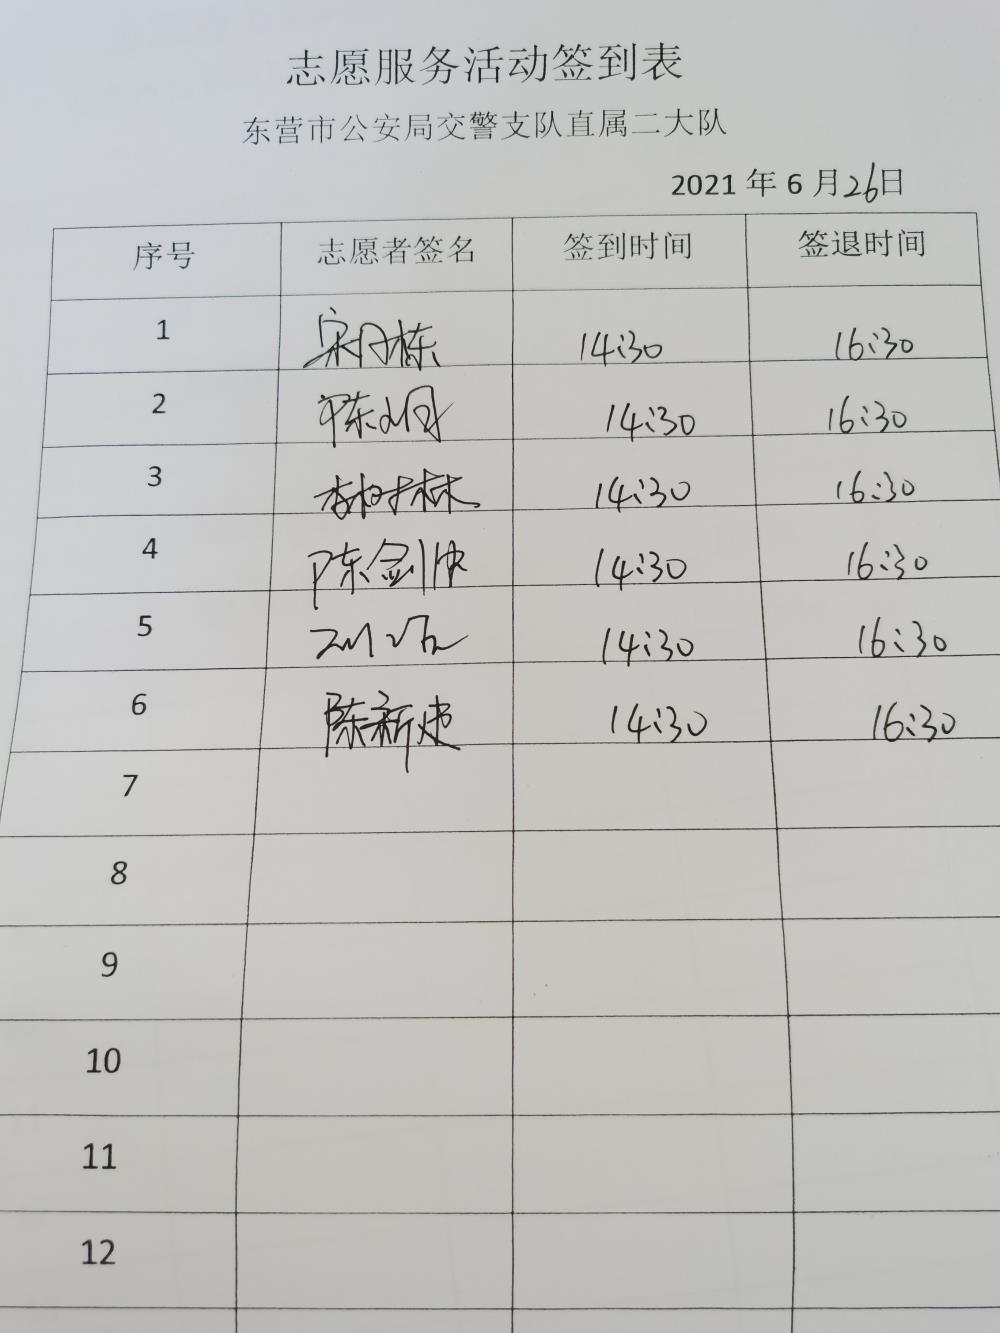 志愿服务活动签到表
东营市公安局交警支队直属二大队
2021 年 6 月26日
序号 志愿者签名 签到时间 签退时间
1 14:30 16:30
2 14:30 16:30
3 14:30 16:30
4 陈剑 14:30 16:30
5 14:30 16:30
6 陈新建 14:30 16:30
7
8
9
10
11
12